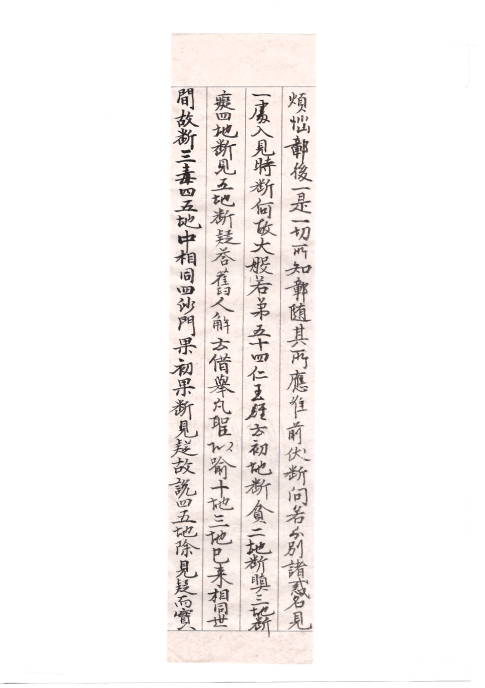 煩惱鄣後一是一切所知鄣隨其所應准前伏斷問若分別諸惑名見
一處入見時斷何故大般若第五十四仁王經云初地斷貪二地斷瞋三地斷
癡四地斷見五地斷疑荅舊人解云借舉凡聖以喻十地三地已来相同世
間故斷三毒四五地中相同四沙門果初果斷見疑故說四五地除見疑而實